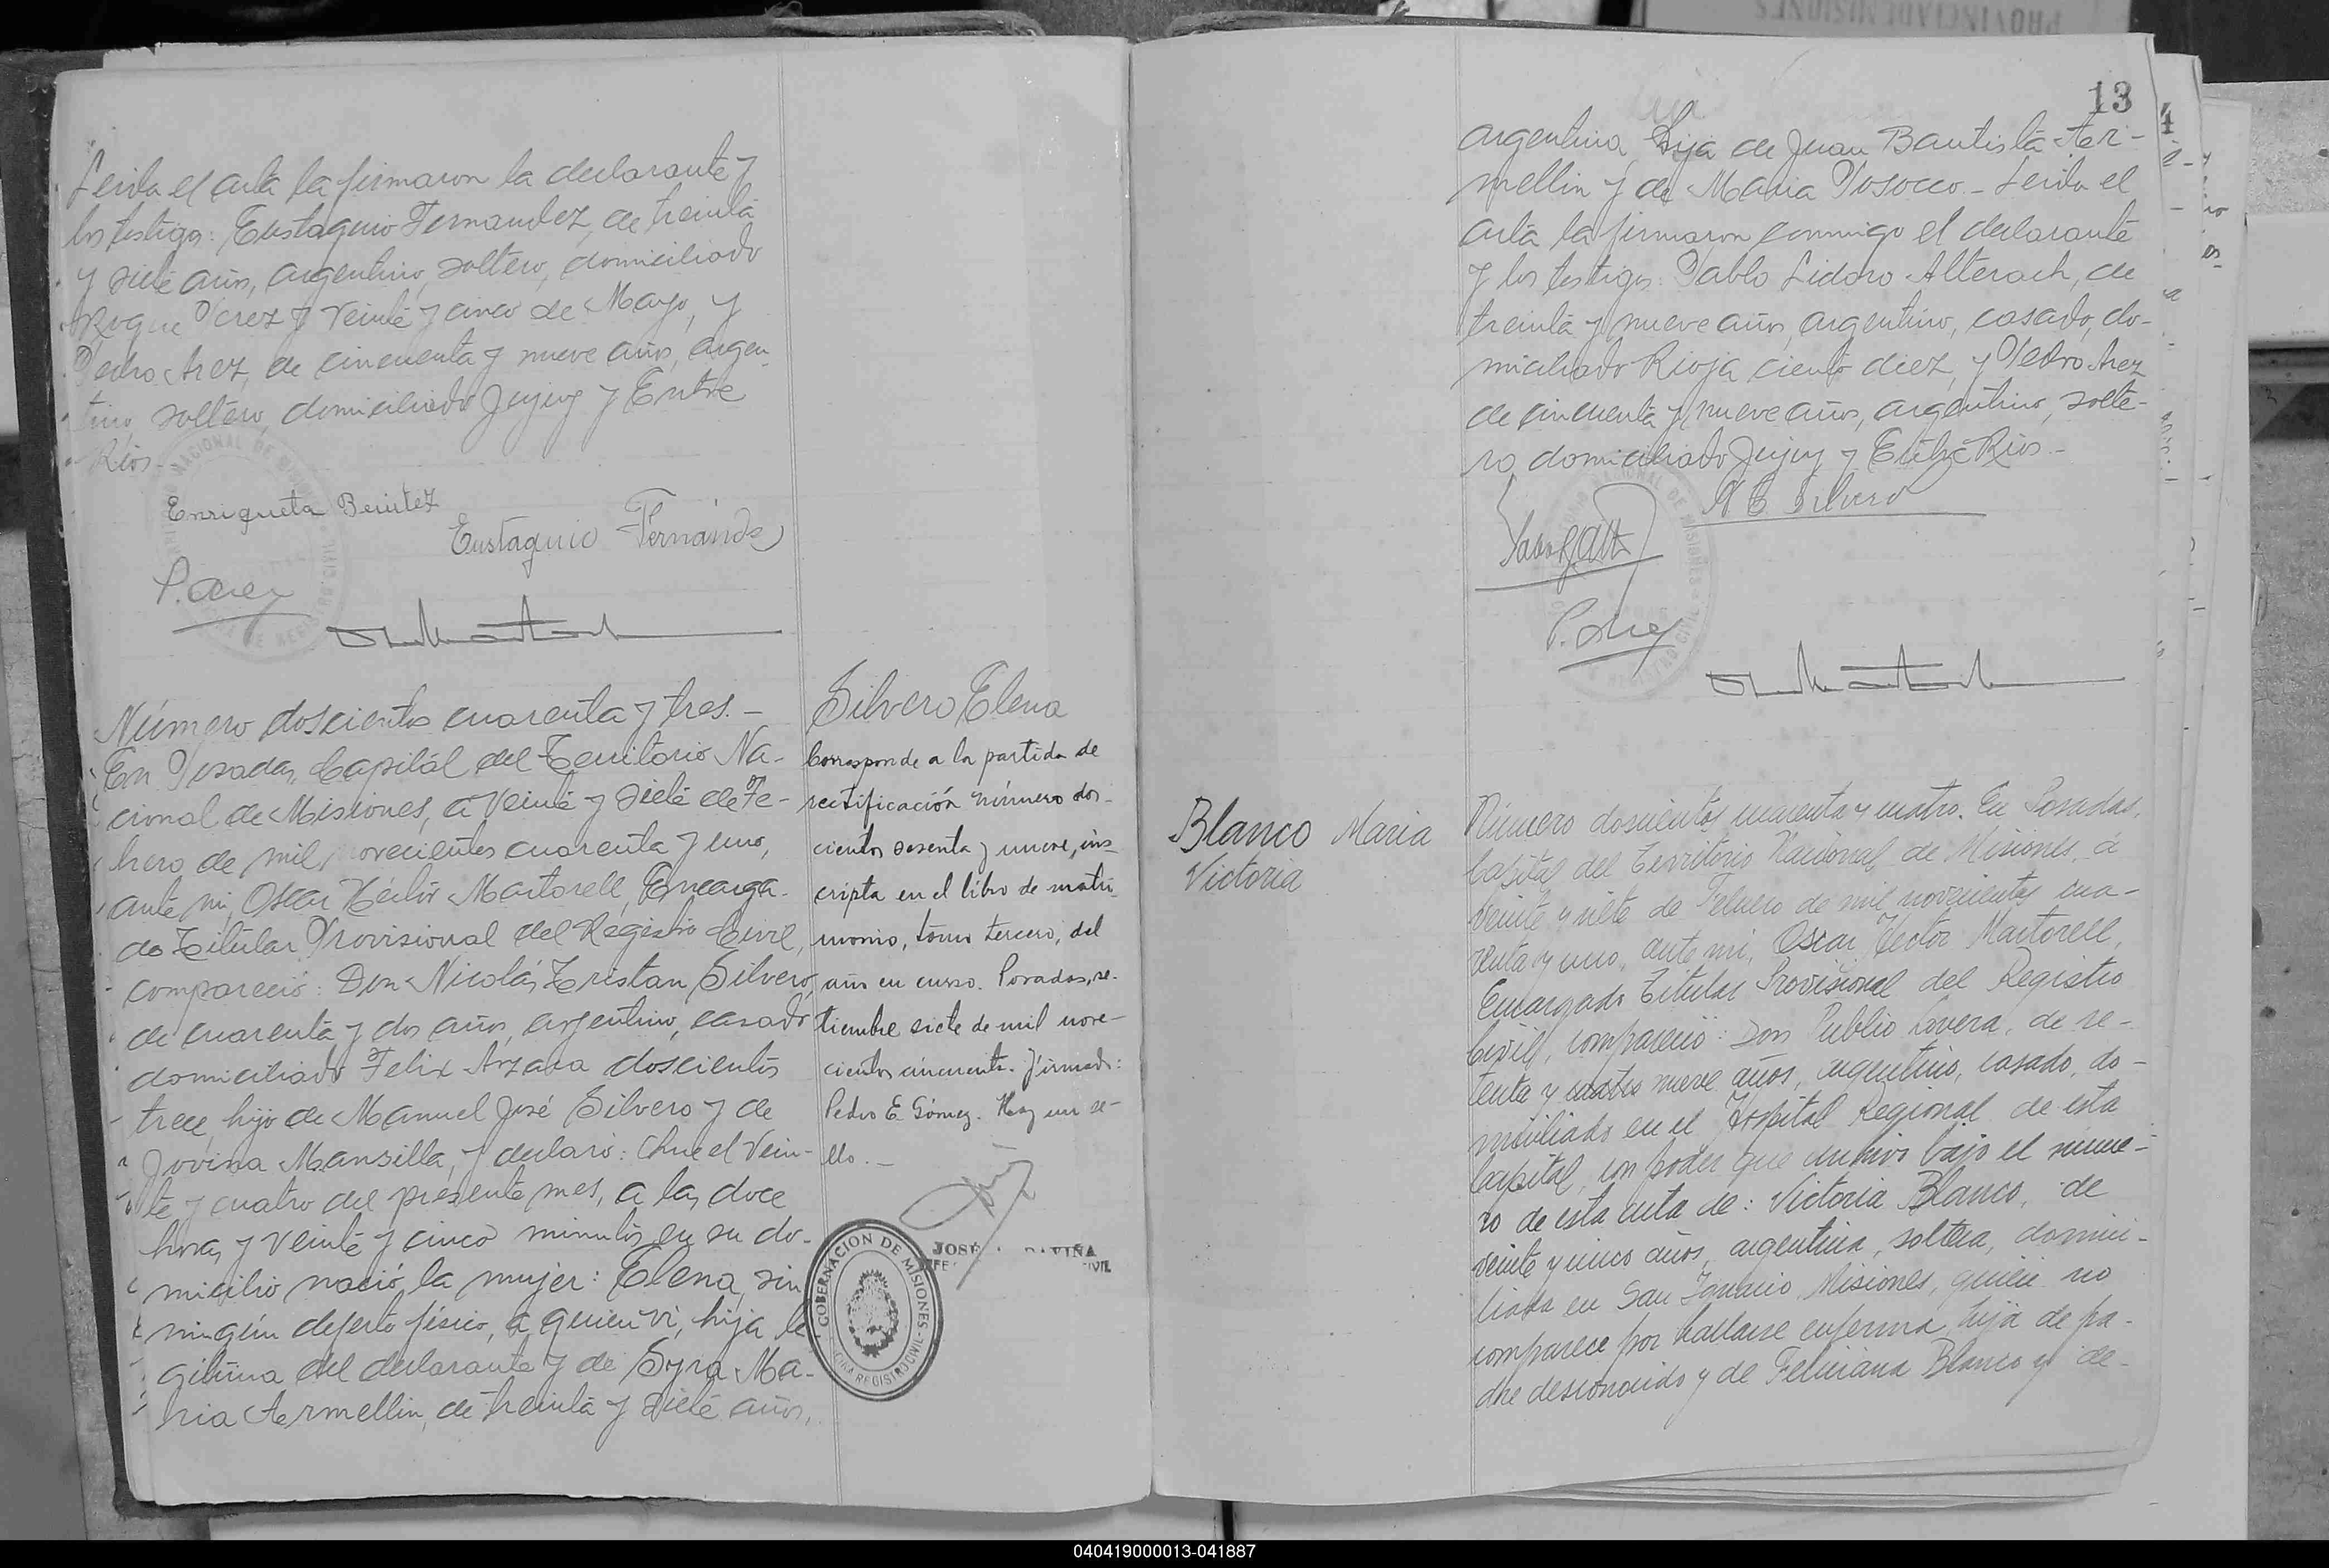 Leida el acta la firmaron la declarante y
los testigos: Eustaquio Fernandez, de treinta
y siete años, argentino, soltero, domiciliado
Roque Perez y Veinte y cinco de Mayo, y
Pedro Arez, de cincuenta y nueve años, argen-
tino, soltero, domiciliado Jujuy y Entre
Rios.-
Enriqueta Benitez
Eustaquio Fernández
P. Arez
Número doscientos cuarenta y tres.-
En Posadas, Capital del Territorio Na-
cional de Misiones, a veinte y siete de Fe-
brero de mil novecientos cuarenta y uno,
ante mi, Oscar Héctor Martorell, Encarga-
do Titular Provisional del Registro Civil,
compareció: Don Nicolás Tristan Silvero,
de cuarenta y dos años, argentino, casado
domiciliado Felix Azara doscientos
trece, hijo de Manuel José Silvero y de
Jovina Mansilla, y declaró: Que el vein-
te y cuatro del presente mes, a las doce
horas y veinte y cinco minutos, en su do-
micilio nació la mujer: Elena, sin
ningún defecto físico, a quien vi, hija le-
gitima del declarante y de Syra Ma-
ria Armellin, de treinta y siete años,
Silvero Elena
Corresponde a la partida de
rectificación número dos-
cientos sesenta y nueve, ins-
cripta en el libro de matri-
monio, tomo tercero, del
año en curso. Posadas, se-
tiembre siete de mil nove-
cientos cincuenta. Firmado:
Pedro E. Gómez. Hay un se-
llo.-
JOSÉ
GOBERNACION DE MISIONES
REGISTRO CIVIL
13
argentina, hija de Juan Bautista Ar-
mellin y de Maria Posocco.- Leida el
acta la firmaron conmigo el declarante
y los testigos: Pablo Lidoro Alterach, de
treinta y nueve años, argentino, casado, do-
miciliado Rioja ciento diez, y Pedro Arez
de cincuenta y nueve años, argentino, solte-
ro, domiciliado Jujuy y Entre Rios.-
N T Silvero
P. Arez
Blanco Maria
Victoria
Número doscientos cuarenta y cuatro. En Posadas,
Capital del Territorio Nacional de Misiones, á
veinte y siete de Febrero de mil novecientos cua-
renta y uno, ante mi, Oscar Hector Martorell,
Encargado Titular Provisional del Registro
Civil, compareció: Don Publio Lovera, de se-
tenta y cuatro nueve años, argentino, casado, do-
miciliado en el Hospital Regional de esta
Capital, con poder que archivo bajo el núme-
ro de esta acta de: Victoria Blanco, de
veinte y cinco años, argentina, soltera, domici-
liada en San Ignacio, Misiones, quien no
comparece por hallarse enferma, hija de pa-
dre desconocido y de Feliciana Blanco y de-
040419000013-041887